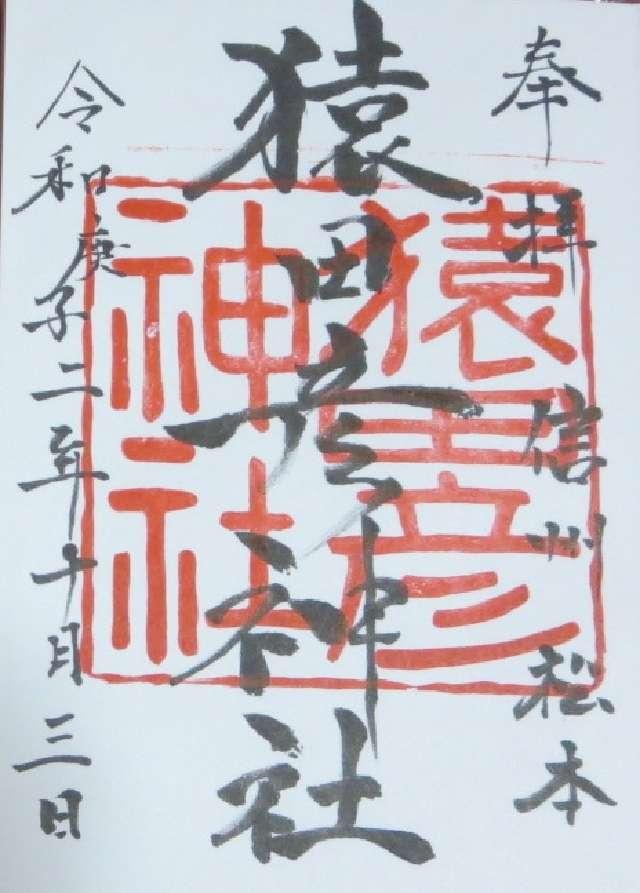 奉拝 信州 松本
猿田彦神社
猿田彦
神社
令和庚子二年十月三日